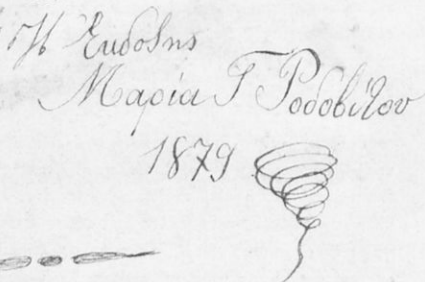 Ἡ Ἐκδοθης
Μαρία Γ Ροδοβίζου
1879